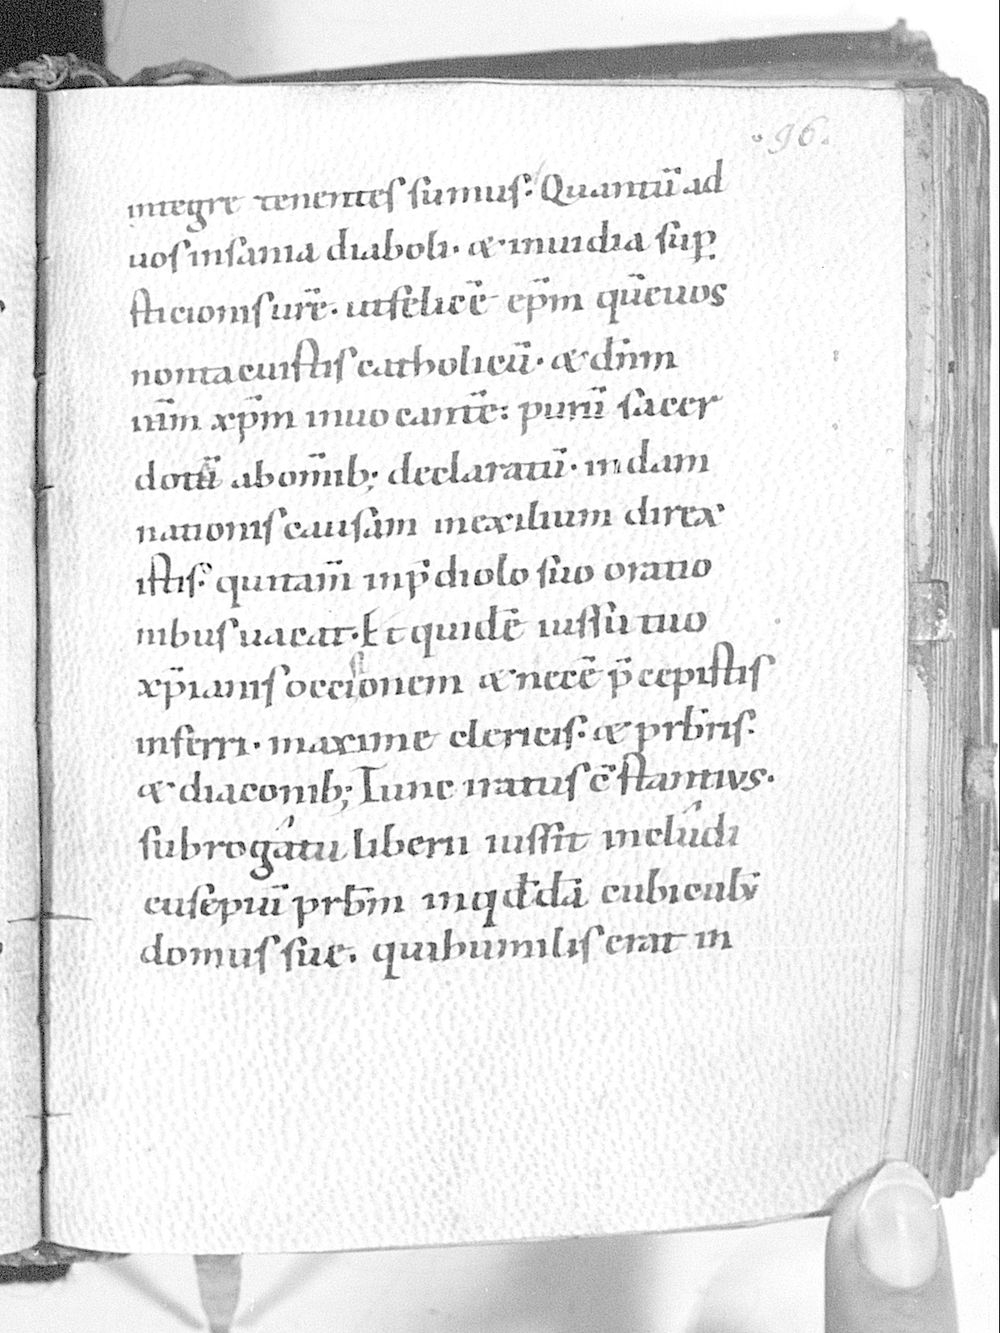 96.
integre tenentes sumus. Quantū ad
uos insania diaboli. & inuidia sup
sticionis urē. ut felicē ep̄m quē uos
non tacuistis catholicū. & dn̄m
nr̄m xp̄m inuocantē: purū sacer
dotū ab om̄ib; declaratū. in dam
nationis causam in exilium direx
istis. qui tam̄ in p̄diolo suo oratio
nibus uacat. Et quidē iussu tuo
xp̄ianis occisionem & necē p̄cepistis
inferri. maxime clericis. & prb̄ris.
& diaconib; Tunc iratus c̄stantius.
subrogatu liberii iussit includi
eusepiū prb̄m in qd̄dā cubiculū
domus sue. qui humilis erat in